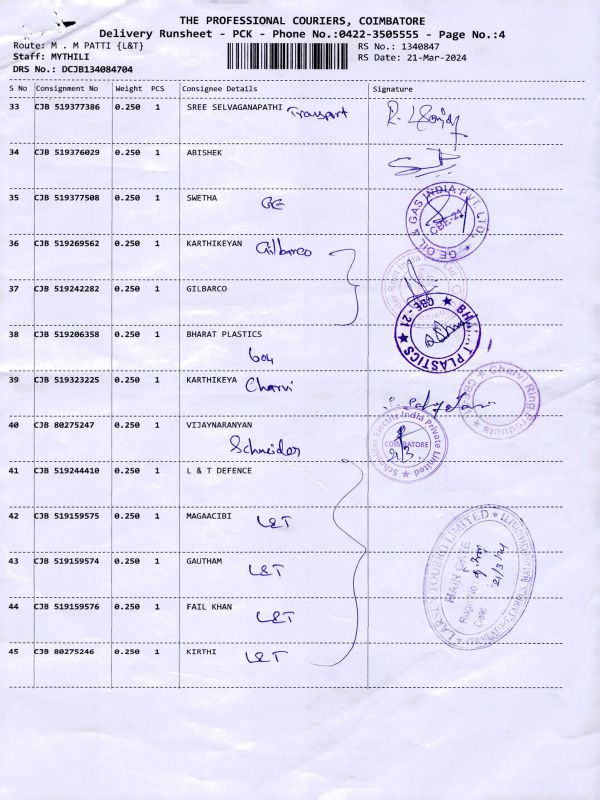 THE PROFESSIONAL COURIERS, COIMBATORE
Delivery Runsheet - PCK - Phone No.:0422-3505555 - Page No.:4
Route: M . M PATTI {L&T} RS No.: 1340847
Staff: MYTHILI RS Date: 21-Mar-2024
DRS No.: DCJB134084704
S No Consignment No Weight PCS Consignee Details Signature
33 CJB 519377386 0.250 1 SREE SELVAGANAPATHI Transport
34 CJB 519376029 0.250 1 ABISHEK
35 CJB 519377508 0.250 1 SWETHA GE
GE OIL & GAS INDIA PVT. LTD.
CBE-21
36 CJB 519269562 0.250 1 KARTHIKEYAN Gilbarco
37 CJB 519242282 0.250 1 GILBARCO
38 CJB 519206358 0.250 1 BHARAT PLASTICS
BHARAT PLASTICS
CBE-21
604
39 CJB 519323225 0.250 1 KARTHIKEYA Charvi
40 CJB 80275247 0.250 1 VIJAYNARANYAN
Schneider
Schneider Electric India Private Limited
COIMBATORE
21/3
41 CJB 519244410 0.250 1 L & T DEFENCE
42 CJB 519159575 0.250 1 MAGAACIBI L&T
43 CJB 519159574 0.250 1 GAUTHAM L&T
44 CJB 519159576 0.250 1 FAIL KHAN L&T
45 CJB 80275246 0.250 1 KIRTHI L&T
LARSEN & TOUBRO LIMITED
MAIN GATE
Date 21/3/24